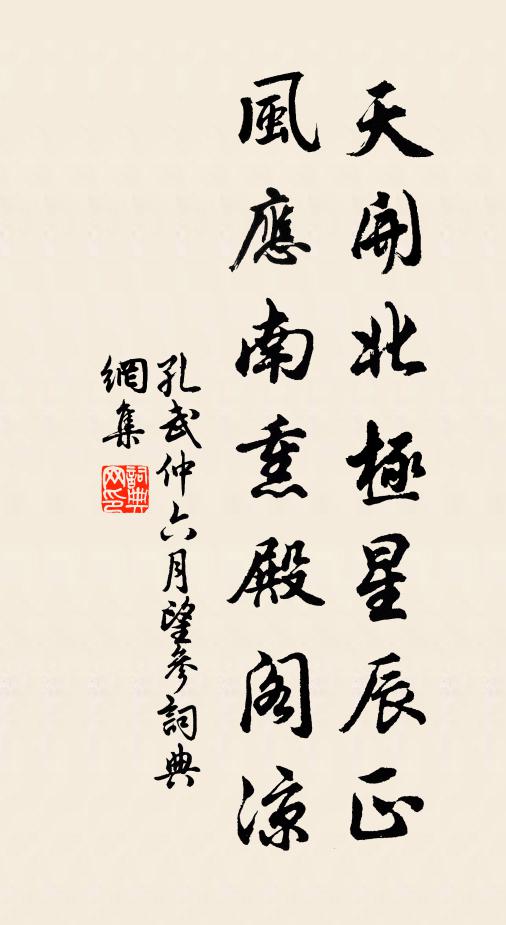 天開北極星辰正
風應南熏殿閣涼
孔武仲六月望參詞典
網集
詞典網印